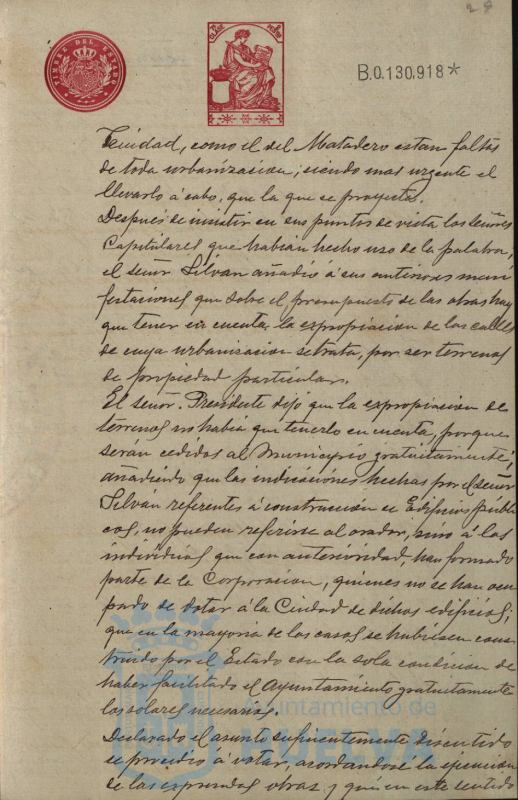 28
TIMBRE DEL ESTADO
B.0.130.918*
Trinidad, como el del Matadero estan faltos
de toda urbanizacion; siendo mas urgente el
llevarlo á cabo, que la que se proyecta.
Despues de insistir en sus puntos de vista los señores
Capitulares que habian hecho uso de la palabra,
el señor Silván añadio á sus anteriores mani
festaciones que sobre el presupuesto de las obras hay
que tener en cuenta la expropiacion de las calles
de cuya urbanizacion se trata, por ser terrenos
de propiedad particular.
El señor Presidente dijo que la expropiacion de
terrenos no habia que tenerlo en cuenta, porque
serán cedidos al Municipio gratuitamente;
añadiendo que las indicaciones hechas por el señor
Silván referentes á construccion de Edificios públi
cos, no pueden referirse al orador, sino á los
individuos que con anterioridad, han formado
parte de la Corporacion, quienes no se han ocu
pado de dotar á la Ciudad de dichos edificios;
que en la mayoria de los casos se hubiesen cons
truido por el Estado con la sola condicion de
haber facilitado el Ayuntamiento gratuitamente
los solares necesarios.
Declarado el asunto suficientemente discutido
se procedio á votar, acordandose la ejecucion
de las expresadas obras, y que en este sentido
Ayuntamiento de
HUELVA